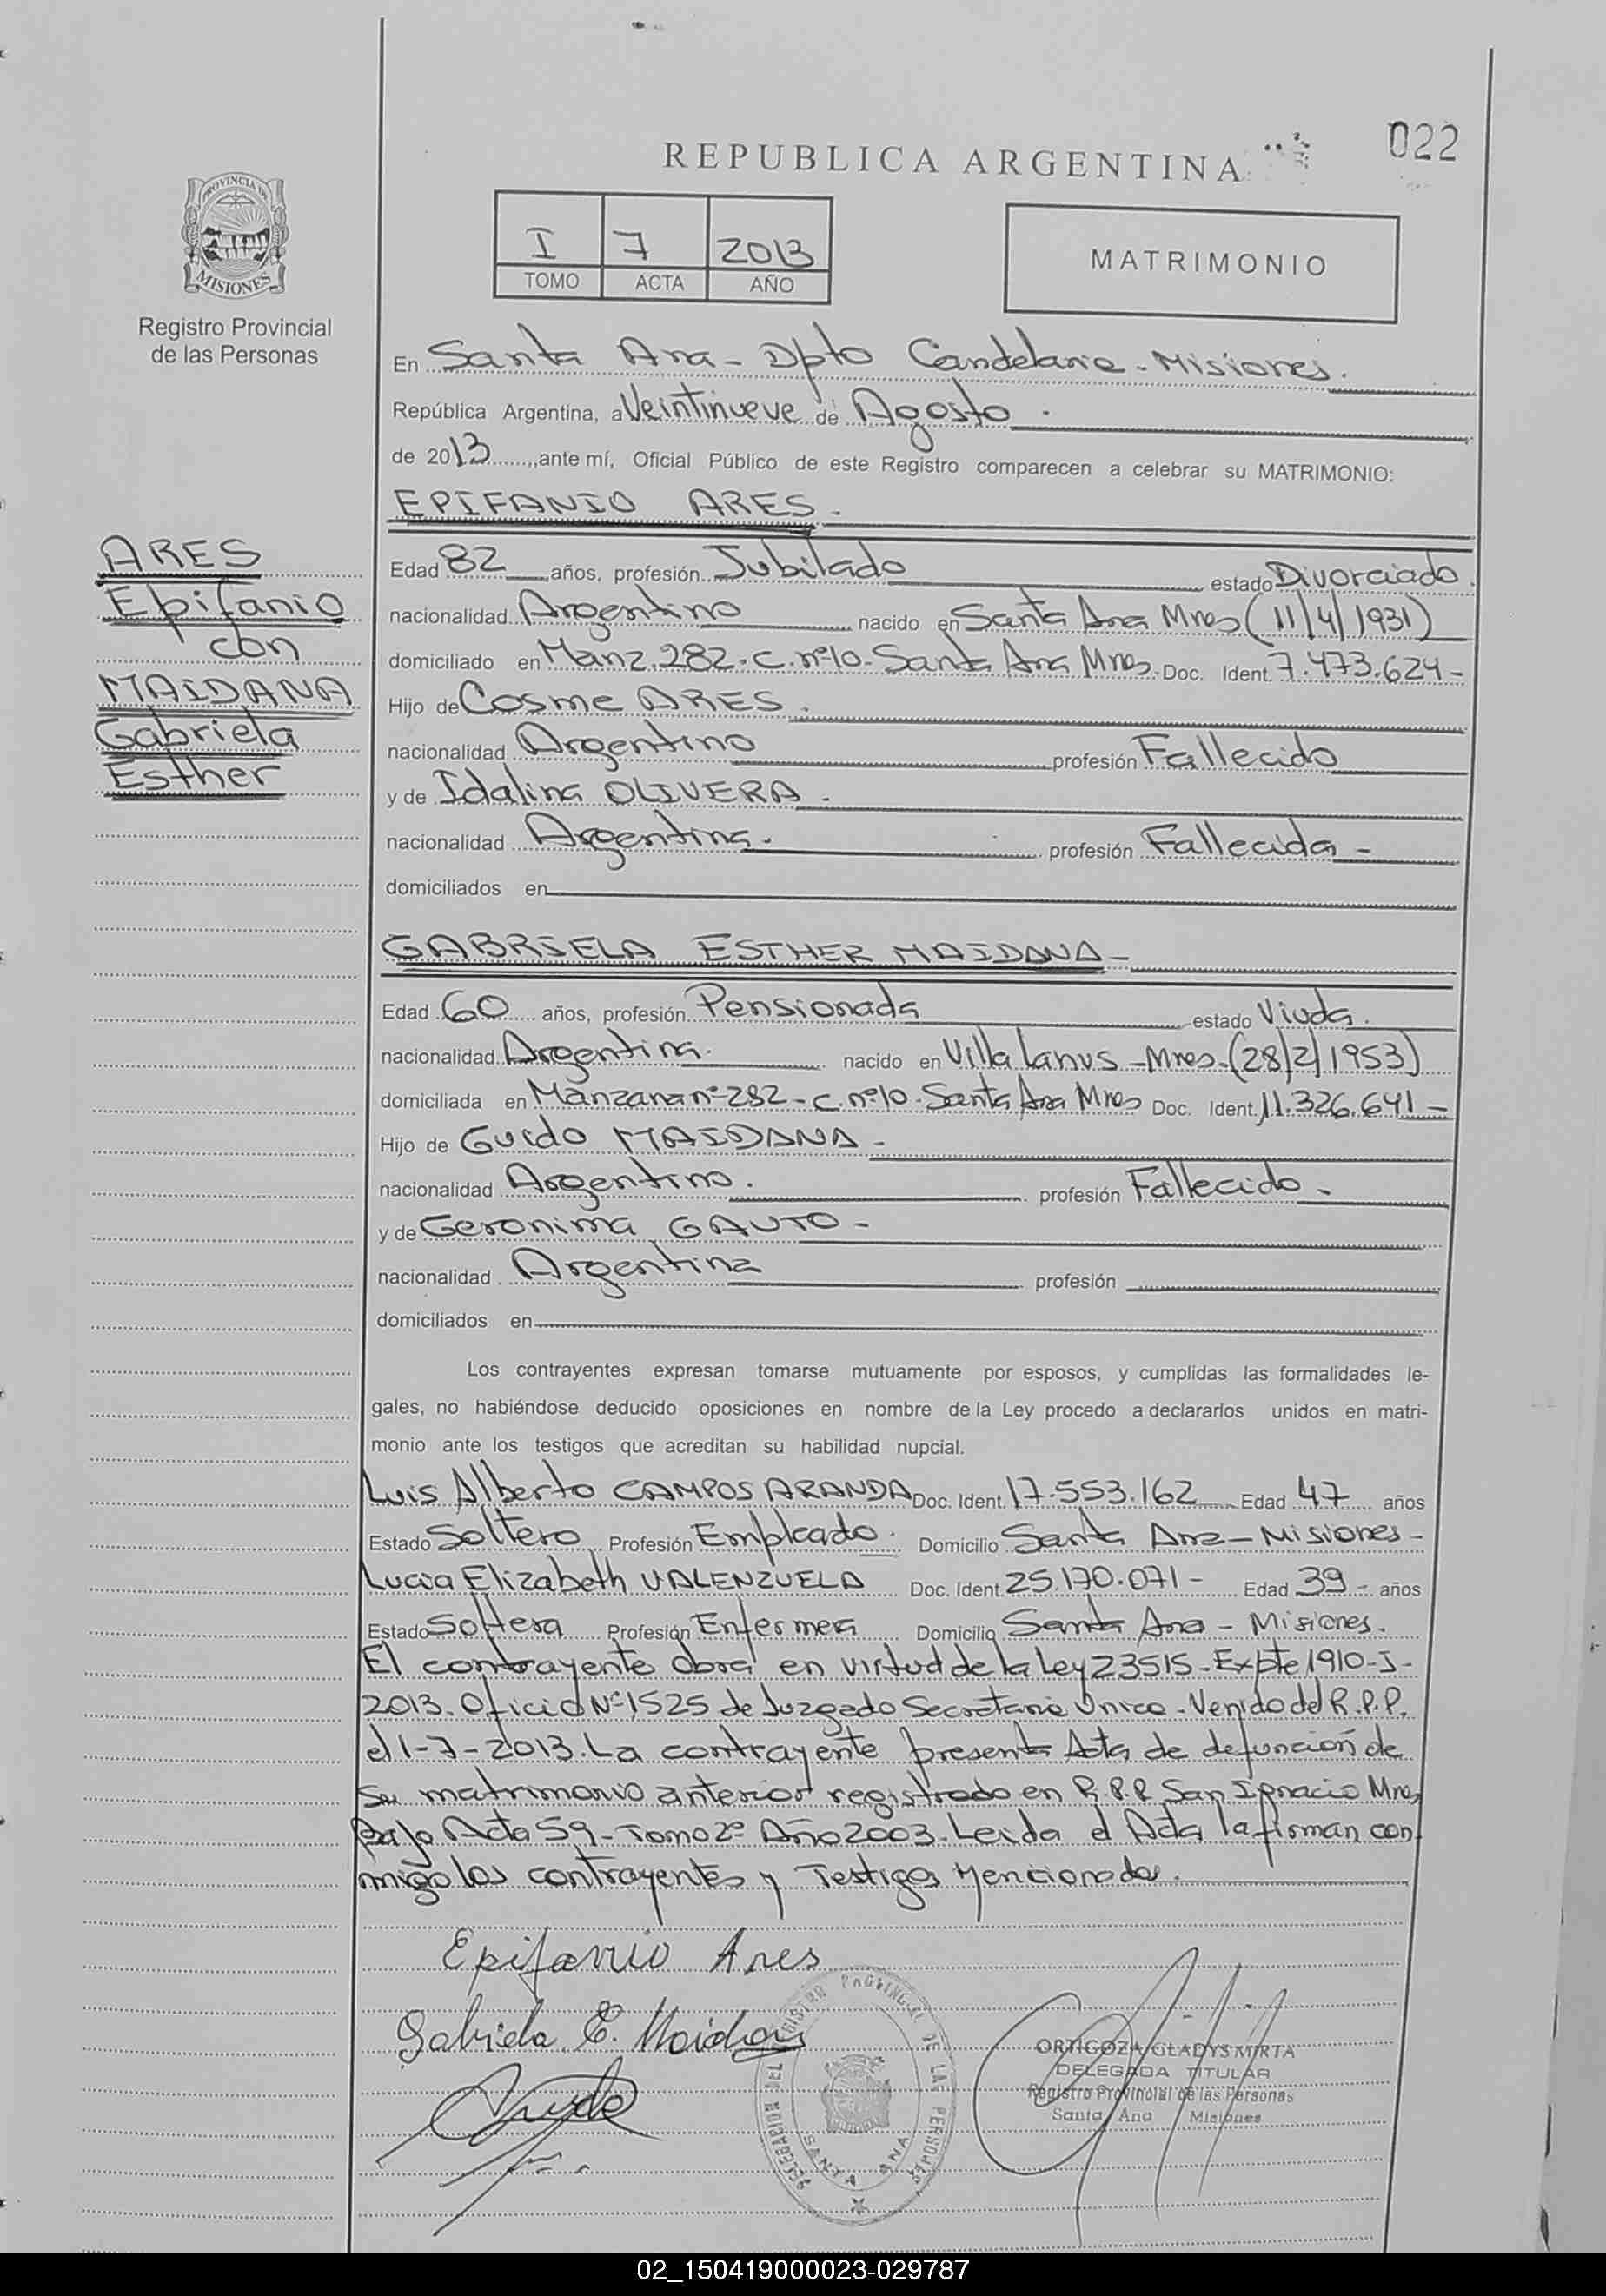 022
REPUBLICA ARGENTINA
PROVINCIA DE
MISIONES
Registro Provincial
de las Personas
I 7 2013
TOMO ACTA AÑO
MATRIMONIO
En Santa Ana - Dpto Candelaria - Misiones.
República Argentina, a Veintinueve de Agosto.
de 2013, ante mí, Oficial Público de este Registro comparecen a celebrar su MATRIMONIO:
EPIFANIO ARES.
ARES
Epifanio
con
MAIDANA
Gabriela
Esther
Edad 82 años, profesión Jubilado estado Divorciado.
nacionalidad Argentino nacido en Santa Ana Mnes (11/4/1931)
domiciliado en Manz. 282 - C. nº 10 - Santa Ana Mnes. Doc. Ident. 7.473.624 -
Hijo de Cosme ARES.
nacionalidad Argentino profesión Fallecido
y de Idalina OLIVERA.
nacionalidad Argentina. profesión Fallecida -
domiciliados en
GABRIELA ESTHER MAIDANA -
Edad 60 años, profesión Pensionada estado Viuda.
nacionalidad Argentina. nacido en Villa Lanus - Mnes. (28/2/1953)
domiciliada en Manzana nº 282 - C. nº 10 - Santa Ana Mnes Doc. Ident. 11.326.641 -
Hijo de Guido MAIDANA -
nacionalidad Argentino. profesión Fallecido -
y de Geronima GAUTO -
nacionalidad Argentina profesión
domiciliados en
Los contrayentes expresan tomarse mutuamente por esposos, y cumplidas las formalidades le-
gales, no habiéndose deducido oposiciones en nombre de la Ley procedo a declararlos unidos en matri-
monio ante los testigos que acreditan su habilidad nupcial.
Luis Alberto CAMPOS ARANDA Doc. Ident. 17.553.162 Edad 47 años
Estado Soltero Profesión Empleado. Domicilio Santa Ana - Misiones -
Lucia Elizabeth VALENZUELA Doc. Ident. 25.170.071 - Edad 39 - años
Estado Soltera Profesión Enfermera Domicilio Santa Ana - Misiones.
El contrayente obra en virtud de la Ley 23515 - Expte 1910 - J -
2013. Oficio Nº 1525 de Juzgado Secretaria Unica - Venido del R.P.P.
el 1-7-2013. La contrayente presenta Acta de defunción de
su matrimonio anterior registrado en R.P.P. San Ignacio Mnes
bajo Acta 59 - Tomo 2º Año 2003. Leida el Acta la firman con
migo los contrayentes y Testigos Mencionados.
Epifanio Ares
Gabriela E. Maidana
DELEGACION DEL REGISTRO PROVINCIAL DE LAS PERSONAS
SANTA ANA
ORTIGOZA GLADYS MIRTA
DELEGADA TITULAR
Registro Provincial de las Personas
Santa Ana Misiones
02_150419000023-029787